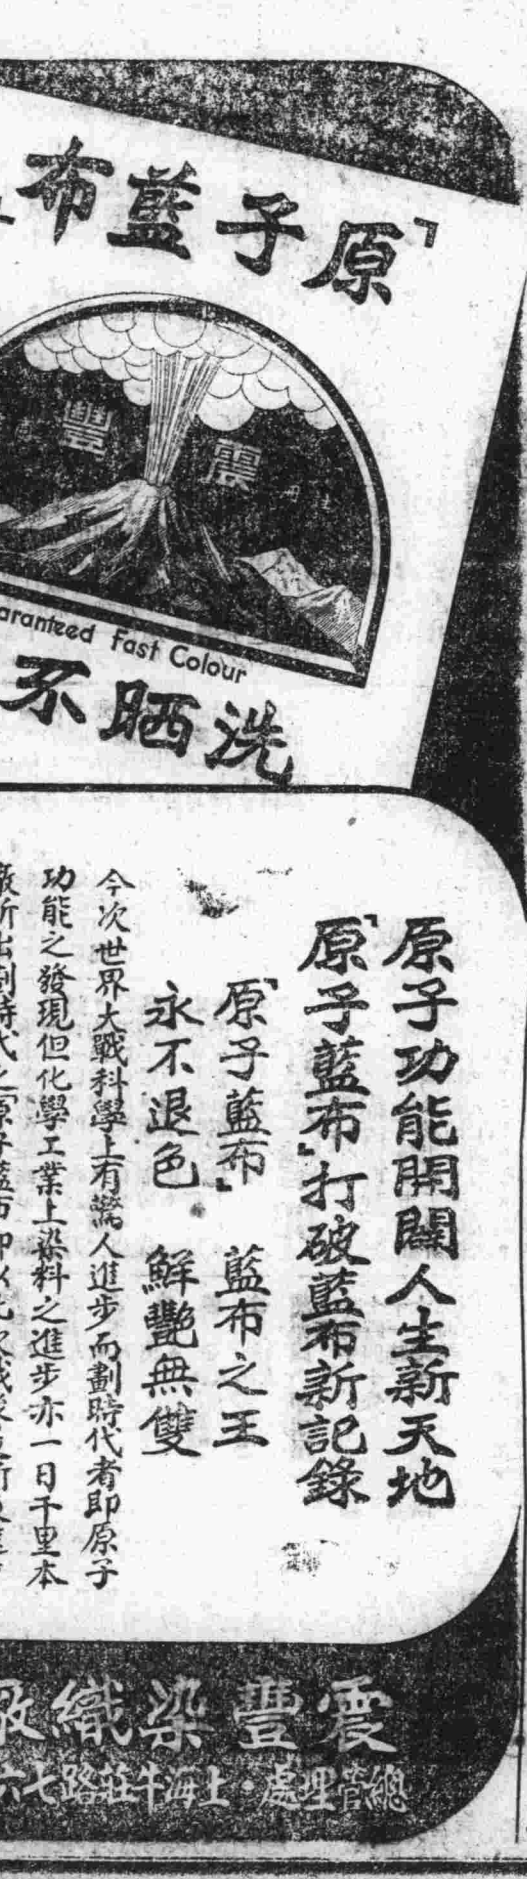 「原子藍布
震豐
aranteed Fast Colour
洗晒不
原子功能開闢人生新天地
「原子藍布」打破藍布新記錄
「原子藍布」 藍布之王
永不退色 鮮艷無雙
今次世界大戰科學上有驚人進步而劃時代者即原子
功能之發現但化學工業上染料之進步亦一日千里本
廠所出劃時代之「原子藍布
震豐染織廠
總管理處・上海牛莊路七六